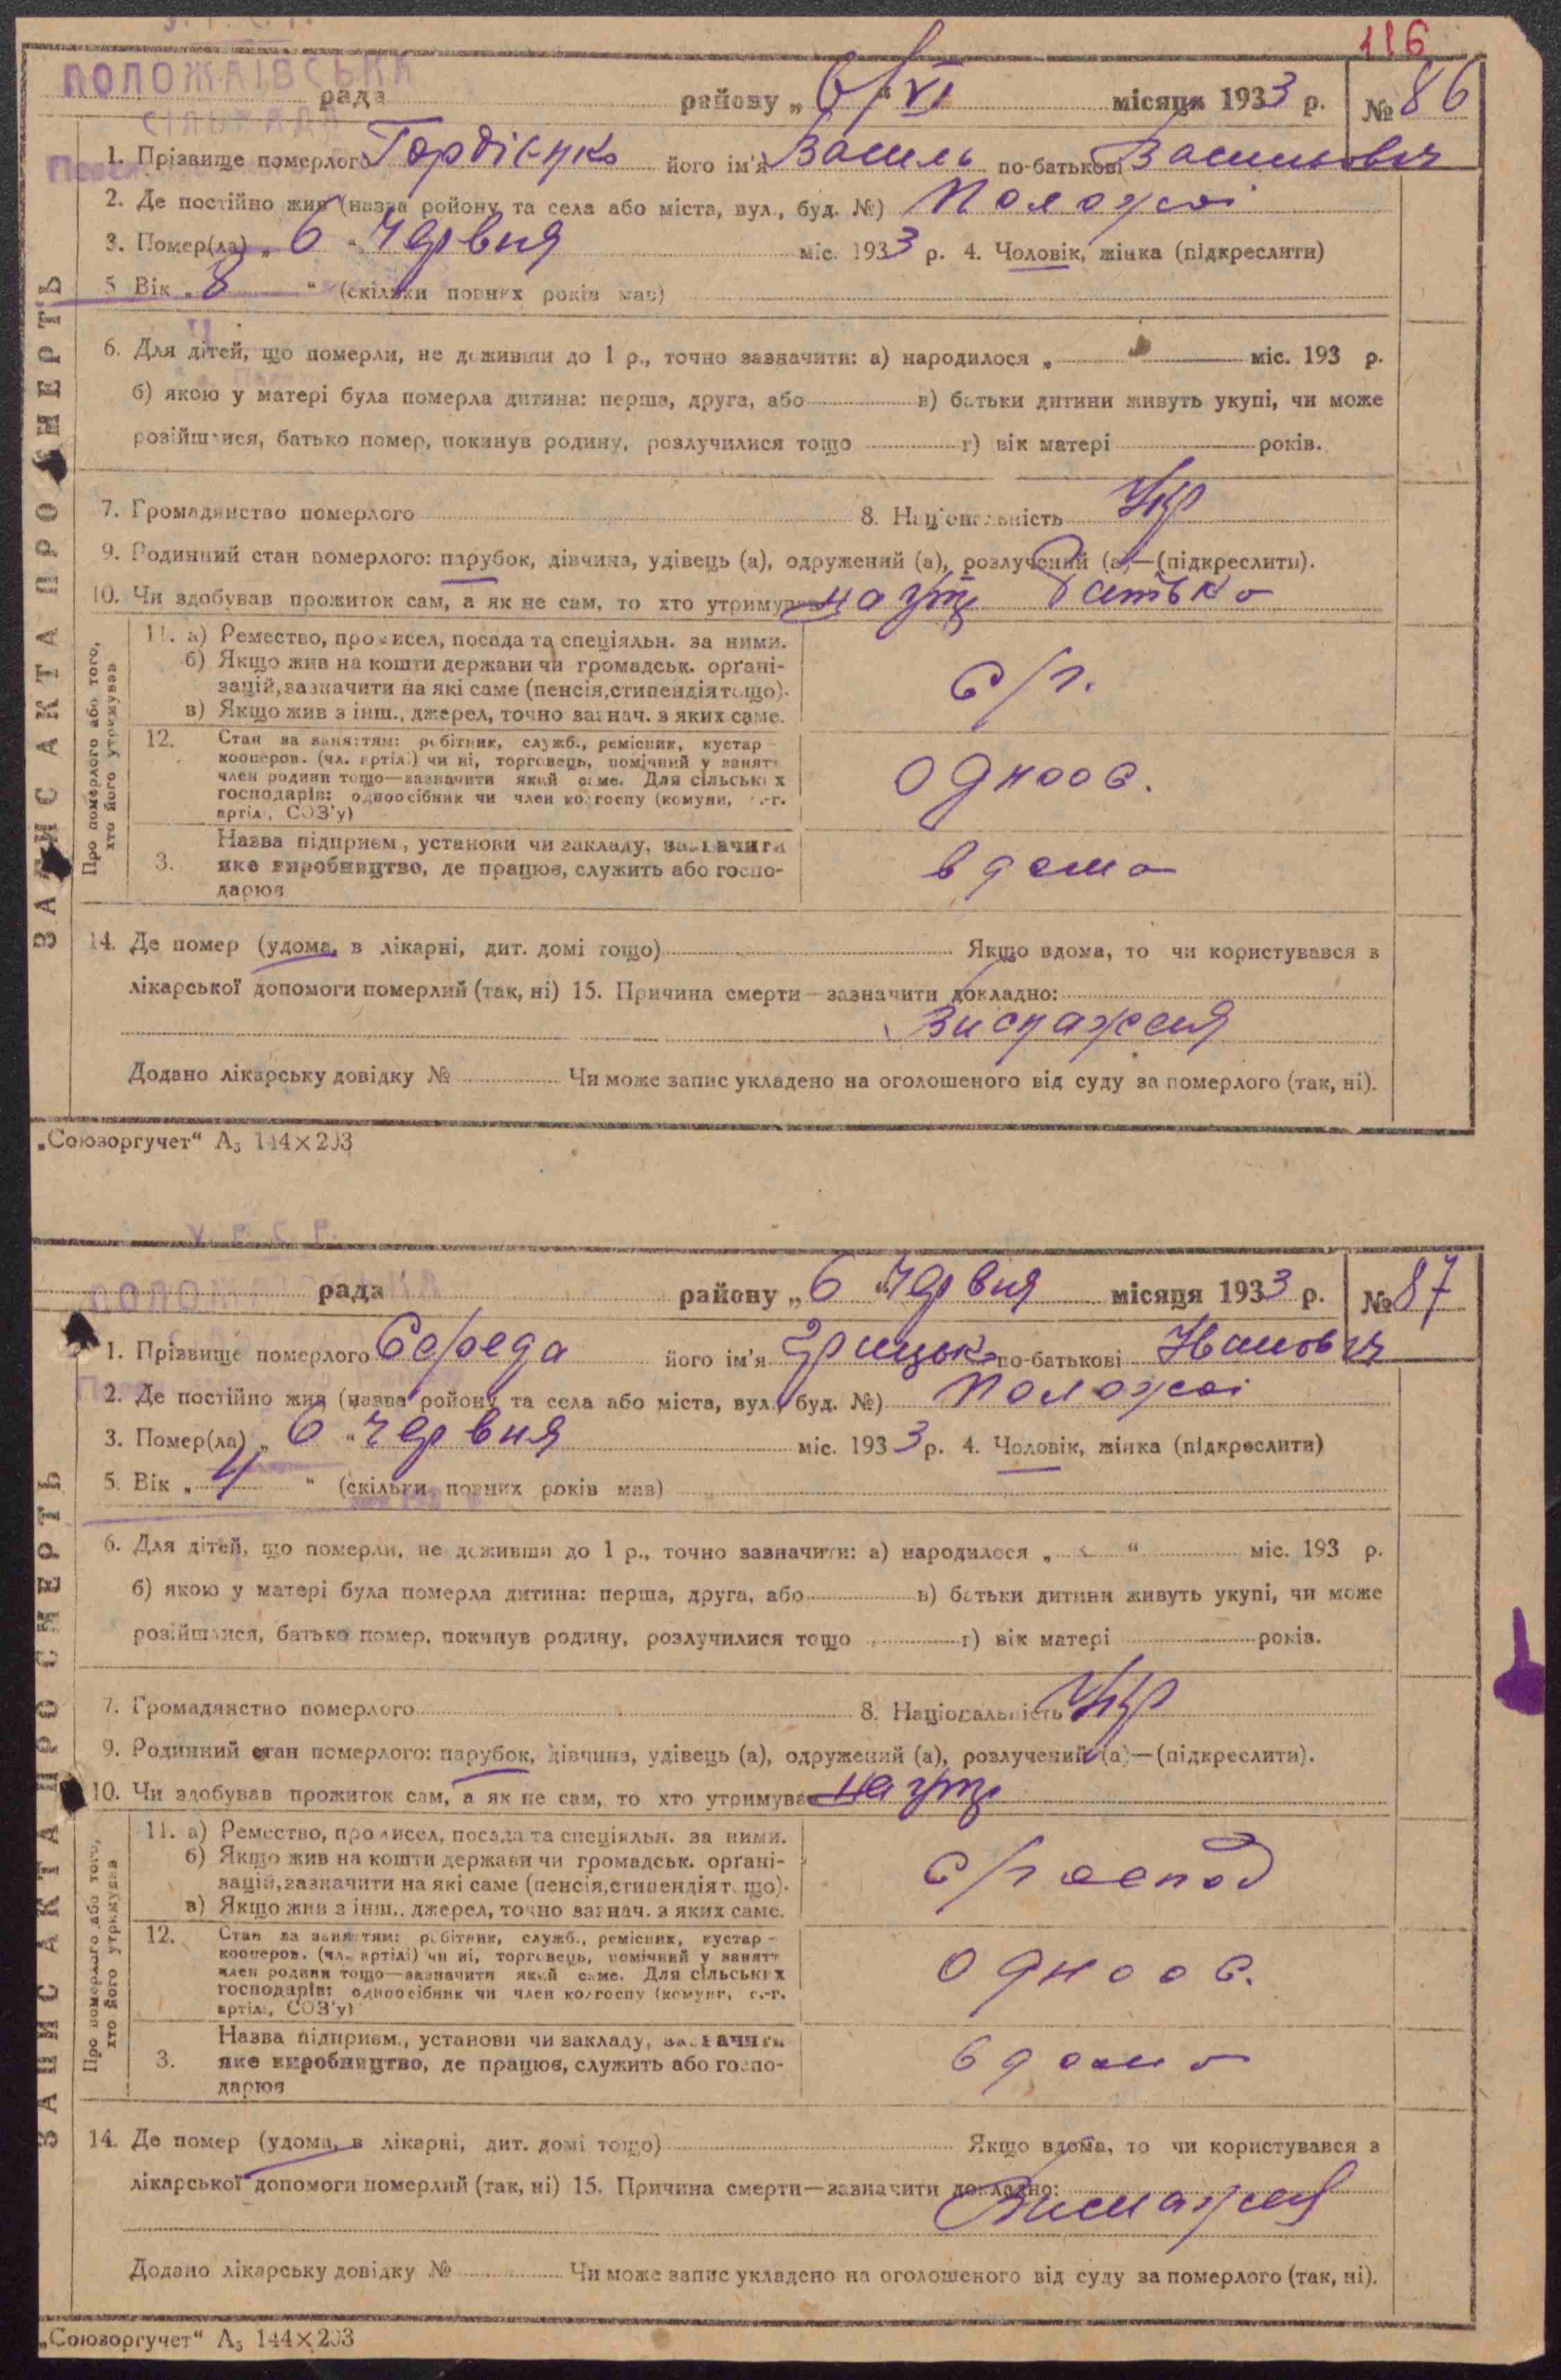 116
У. Р. С. Р.
ПОЛОЖАЇВСЬКА
СІЛЬРАДА
рада району „6/VI“ місяця 1933 р. № 86
ЗАПИС АКТА ПРО СМЕРТЬ
1. Прізвище померлого Гордієнко його ім'я Василь по-батькові Васильович
2. Де постійно жив (назваройону та села або міста, вул., буд. №) Положаї
3. Помер(ла) „6“ червня міс. 1933 р. 4. Чоловік, жінка (підкреслити)
5 Вік „8“ (скільки повних років мав)
6. Для дітей, що померли, не доживши до 1 р., точно зазначити: а) народилося „ міс. 193 р.
б) якою у матері була померла дитина: перша, друга, або в) батьки дитини живуть укупі, чи може
розійшлися, батько помер, покинув родину, розлучилися тощо г) вік матері років.
7. Громадянство померлого 8. Національність Укр
9. Родинний стан померлого: парубок, дівчина, удівець (а), одружений (а), розлучений (а)—(підкреслити).
10. Чи здобував прожиток сам, а як не сам, то хто утримував на утр батька
Про померлого або того,
хто його утримував
11. а) Ремество, промисел, посада та спеціяльн. за ними.
б) Якщо жив на кошти держави чи громадськ. орґані-
зацій, зазначити на які саме (пенсія, стипендія тощо).
в) Якщо жив з інш., джерел, точно зазнач. з яких саме.
с/г.
12. Стан за заняттям: робітник, служб., ремісник, кустар-
кооперов. (чл. артілі) чи ні, торговець, помічний у занятт
член родини тощо—зазначити який саме. Для сільських
господарів: одноосібник чи член колгоспу (комуни, с.-г.
артілі, СОЗ'у)
одноос.
3. Назва підприєм., установи чи закладу, зазначити
яке виробництво, де працює, служить або госпо-
дарює
вдома
14. Де помер (удома, в лікарні, дит. домі тощо) Якщо вдома, то чи користувався з
лікарської допомоги померлий (так, ні) 15. Причина смерти—зазначити докладно:
Виснаження
Додано лікарську довідку № Чи може запис укладено на оголошеного від суду за померлого (так, ні).
„Союзоргучет“ А5 144×203
У. Р. С. Р.
ПОЛОЖАЇВСЬКА
рада району „6“ червня місяця 1933 р. № 87
ЗАПИС АКТА ПРО СМЕРТЬ
1. Прізвище померлого Середа його ім'я Грицько по-батькові Іванович
2. Де постійно жив (назва ройону та села або міста, вул., буд. №) Положаї
3. Помер(ла) „6“ червня міс. 1933 р. 4. Чоловік, жінка (підкреслити)
5. Вік „4“ (скільки повних років мав)
6. Для дітей, що померли, не доживши до 1 р., точно зазначити: а) народилося „ “ міс. 193 р.
б) якою у матері була померла дитина: перша, друга, або в) батьки дитини живуть укупі, чи може
розійшлися, батько помер, покинув родину, розлучилися тощо г) вік матері років.
7. Громадянство померлого 8. Національність Укр
9. Родинний стан померлого: парубок, дівчина, удівець (а), одружений (а), розлучений (а)—(підкреслити).
10. Чи здобував прожиток сам, а як не сам, то хто утримував на утр
Про померлого або того,
хто його утримував
11. а) Ремество, промисел, посада та спеціяльн. за ними.
б) Якщо жив на кошти держави чи громадськ. орґані-
зацій, зазначити на які саме (пенсія, стипендія тощо).
в) Якщо жив з інш., джерел, точно зазнач. з яких саме.
12. Стан за заняттям: робітник, служб., ремісник, кустар-
кооперов. (чл. артілі) чи ні, торговець, помічний у занятт
член родини тощо—зазначити який саме. Для сільських
господарів: одноосібник чи член колгоспу (комуни, с.-г.
артілі, СОЗ'у)
одноос.
3. Назва підприєм., установи чи закладу, зазначити
яке виробництво, де працює, служить або госпо-
дарює
вдома
14. Де помер (удома, в лікарні, дит. домі тощо) Якщо вдома, то чи користувався з
лікарської допомоги померлий (так, ні) 15. Причина смерти—зазначити докладно:
Виснаження
Додано лікарську довідку № Чи може запис укладено на оголошеного від суду за померлого (так, ні).
„Союзоргучет“ А5 144×203